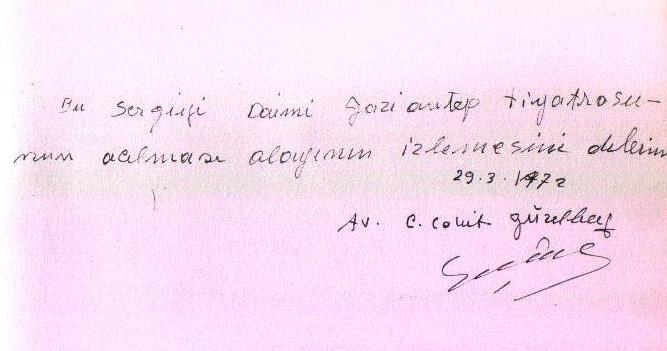 Bu Sergiyi Daimi Gaziantep tiyatrosu-
nun açılması olayının izlemesini dilerim
29.3.1972
Av. C. Cahit güzelbey